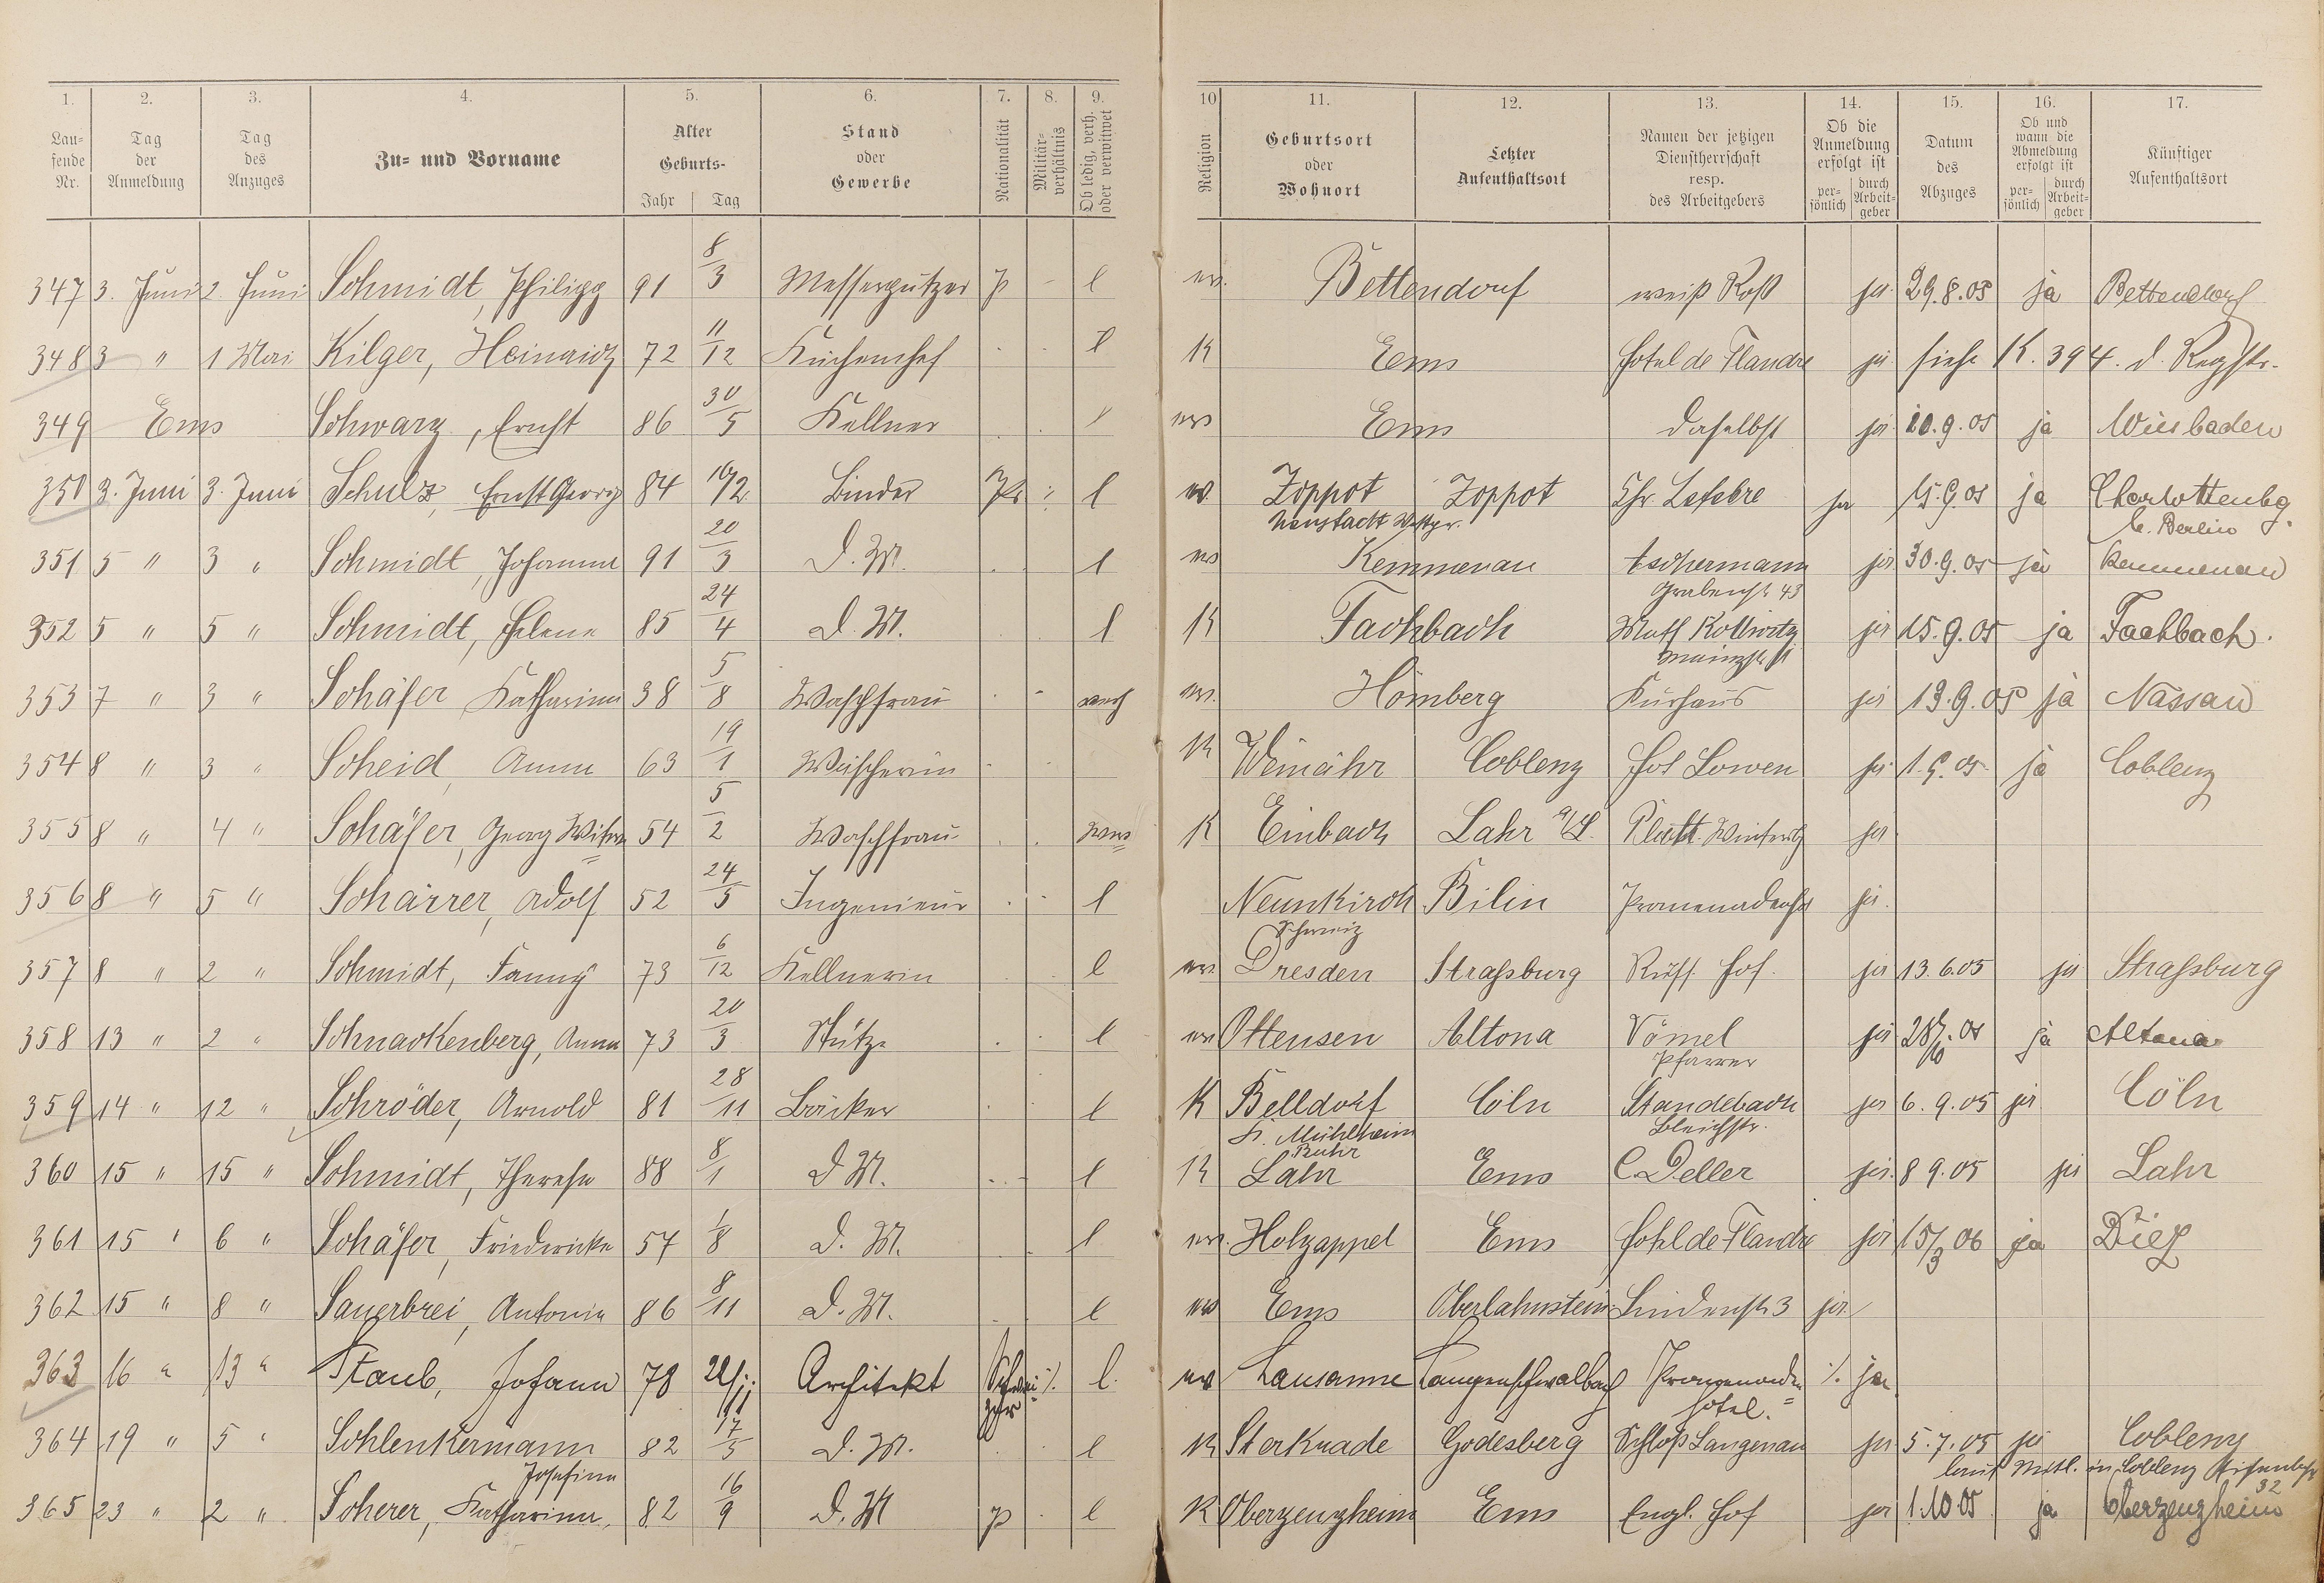 1. 2. 3. 4. 5. 6. 7. 8. 9. 10 11. 12. 13. 14. 15. 16. 17.
Lau-
fende
Nr.
Tag
der
Anmeldung
Tag
des
Anzuges
Zu- und Vorname
Alter
Geburts-
Jahr Tag
Stand
oder
Gewerbe
Nationalität
Militär-
verhältnis
Ob ledig, verh.
oder verwitwet
Religion
Geburtsort
oder
Wohnort
Letzter
Aufenthaltsort
Namen der jetzigen
Dienstherrschaft
resp.
des Arbeitgebers
Ob die
Anmeldung
erfolgt ist
per-
sönlich
durch
Arbeit-
geber
Datum
des
Abzuges
Ob und
wann die
Abmeldung
erfolgt ist
per-
sönlich
durch
Arbeit-
geber
Künftiger
Aufenthaltsort
347 3. Juni 2. Juni Schmidt, Philipp 91 8/3 Messerputzer p - l ev. Bettendorf weiß Roß ja 29.8.05 ja Bettendorf
348 3 " 1 Mai Kilger, Heinrich 72 11/12 Küchenchef l K Ems Hotel de Flandre ja siehe K. 394. d. Regstr.
349 Ems Schwarz, Ernst 86 30/5 Kellner l ev Ems daselbst ja 20.9.05 ja Wiesbaden
350 3. Juni 3. Juni Schulz, Ernst Georg 84 10/2 Binder Pr l ev. Zoppot Zoppot Chr. Lefebre ja 15.9.05 ja Charlottenbg.
Neustadt Westpr. b. Berlin
351 5 " 3 " Schmidt, Johanna 91 20/3 D. M. l ev Kemmenau Aschermann ja 30.9.05 ja Kemmenau
Grabenstr 43
352 5 " 5 " Schmidt, Helene 85 24/4 D. M. l K Fachbach Kollwitz ja 15.9.05 ja Fachbach.
353 7 " 3 " Schäfer Katharina 38 5/8 Waschfrau - verh ev. Hömberg Kurhaus ja 13.9.05 ja Nassau
354 8 " 3 " Scheid, Anna 63 19/1 Wäscherin K Weinähr Coblenz Hof Lowen ja 1.9.05 ja Coblenz
355 8 " 4 " Schäfer, Georg Witwe 54 5/2 Waschfrau K Einbach Lahr a/L. Platt. ja
356 8 " 5 " Schärrer, Adolf 52 24/5 Ingenieur l Neunkirch Bilin ja.
Schweiz
357 8 " 2 " Schmidt, Fanny 73 6/12 Kellnerin l ev. Dresden Straßburg Russ. Hof. ja 13.6.05 ja Straßburg
358 13 " 2 " Schnackenberg, Anna 73 20/3 Stütze l ev Ottensen Altona Vömel ja 28/10.05 ja Altona
Pfarrer
359 14 " 12 " Schröder, Arnold 81 28/11 Bäcker l K Belldorf Cöln Standebach ja 6.9.05 ja Cöln
Kr. Mühlheim Bleichstr.
Ruhr
360 15 " 15 " Schmidt, Therese 88 8/1 D M. l K Lahr Ems C. Deller ja. 8 9.05 ja Lahr
361 15 " 6 " Schäfer, Friedericke 57 1/8 D. M. l ev. Holzappel Ems Hotel de Flandre ja 15/3 06 ja Diez
362 15 " 8 " Sauerbrei, Antonie 86 8/11 D. M. l ev Ems Oberlahnstein Lindenstr 3 ja
363 16 " 13 " Staub, Johann 78 Architekt Schwei- %. l. ev Lausanne Langenschwalbach Promenade- %. ja
zer hotel.
364 19 " 5 " Schlenkermann 82 17/5 D. M. l K Sterkrade Godesberg Schloß Langenau ja 5.7.05 ja Coblenz
Josefine laut Mitl. in Coblenz
32
365 23 " 2 " Scherer, Katharina, 82 16/9 D. M p l K Oberzeuzheim Ems Engl. Hof ja 1.10.05 ja Oberzeuzheim